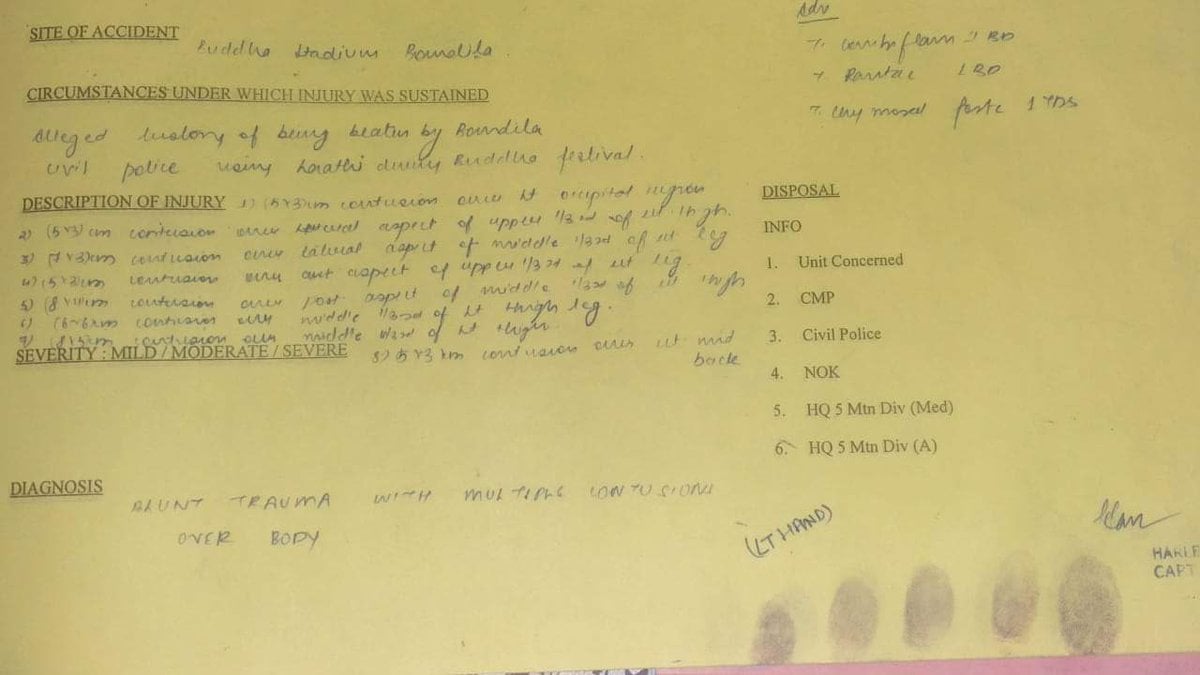 SITE OF ACCIDENT
Buddha Stadium Bomdila.
CIRCUMSTANCES UNDER WHICH INJURY WAS SUSTAINED
Alleged history of being beaten by Bomdila
civil police using Lathi during Buddha festival.
DESCRIPTION OF INJURY 1) (5x3)cm contusion over Lt occipital region
2) (5x3) cm contusion over lateral aspect of upper 1/3rd of Lt thigh.
3) (7x3)cm contusion over lateral aspect of middle 1/3rd of Lt leg
4) (5x3)cm contusion over ant aspect of upper 1/3rd of Lt leg.
5) (8x1)cm contusion over post aspect of middle 1/3rd of Lt thigh
6) (6x6)cm contusion over middle 1/3rd of Lt thigh leg.
7) contusion over middle of Lt thigh.
SEVERITY : MILD / MODERATE / SEVERE
8) 5x3 cm contusion over Lt mid
back
DIAGNOSIS
BLUNT TRAUMA WITH MULTIPLE CONTUSIONS
OVER BODY
Adv
T. Combiflam 1 BD
T. Rantac 1 BD
T. paste 1 TDS
DISPOSAL
INFO
1. Unit Concerned
2. CMP
3. Civil Police
4. NOK
5. HQ 5 Mtn Div (Med)
6. HQ 5 Mtn Div (A)
(LT HAND)
CAPT